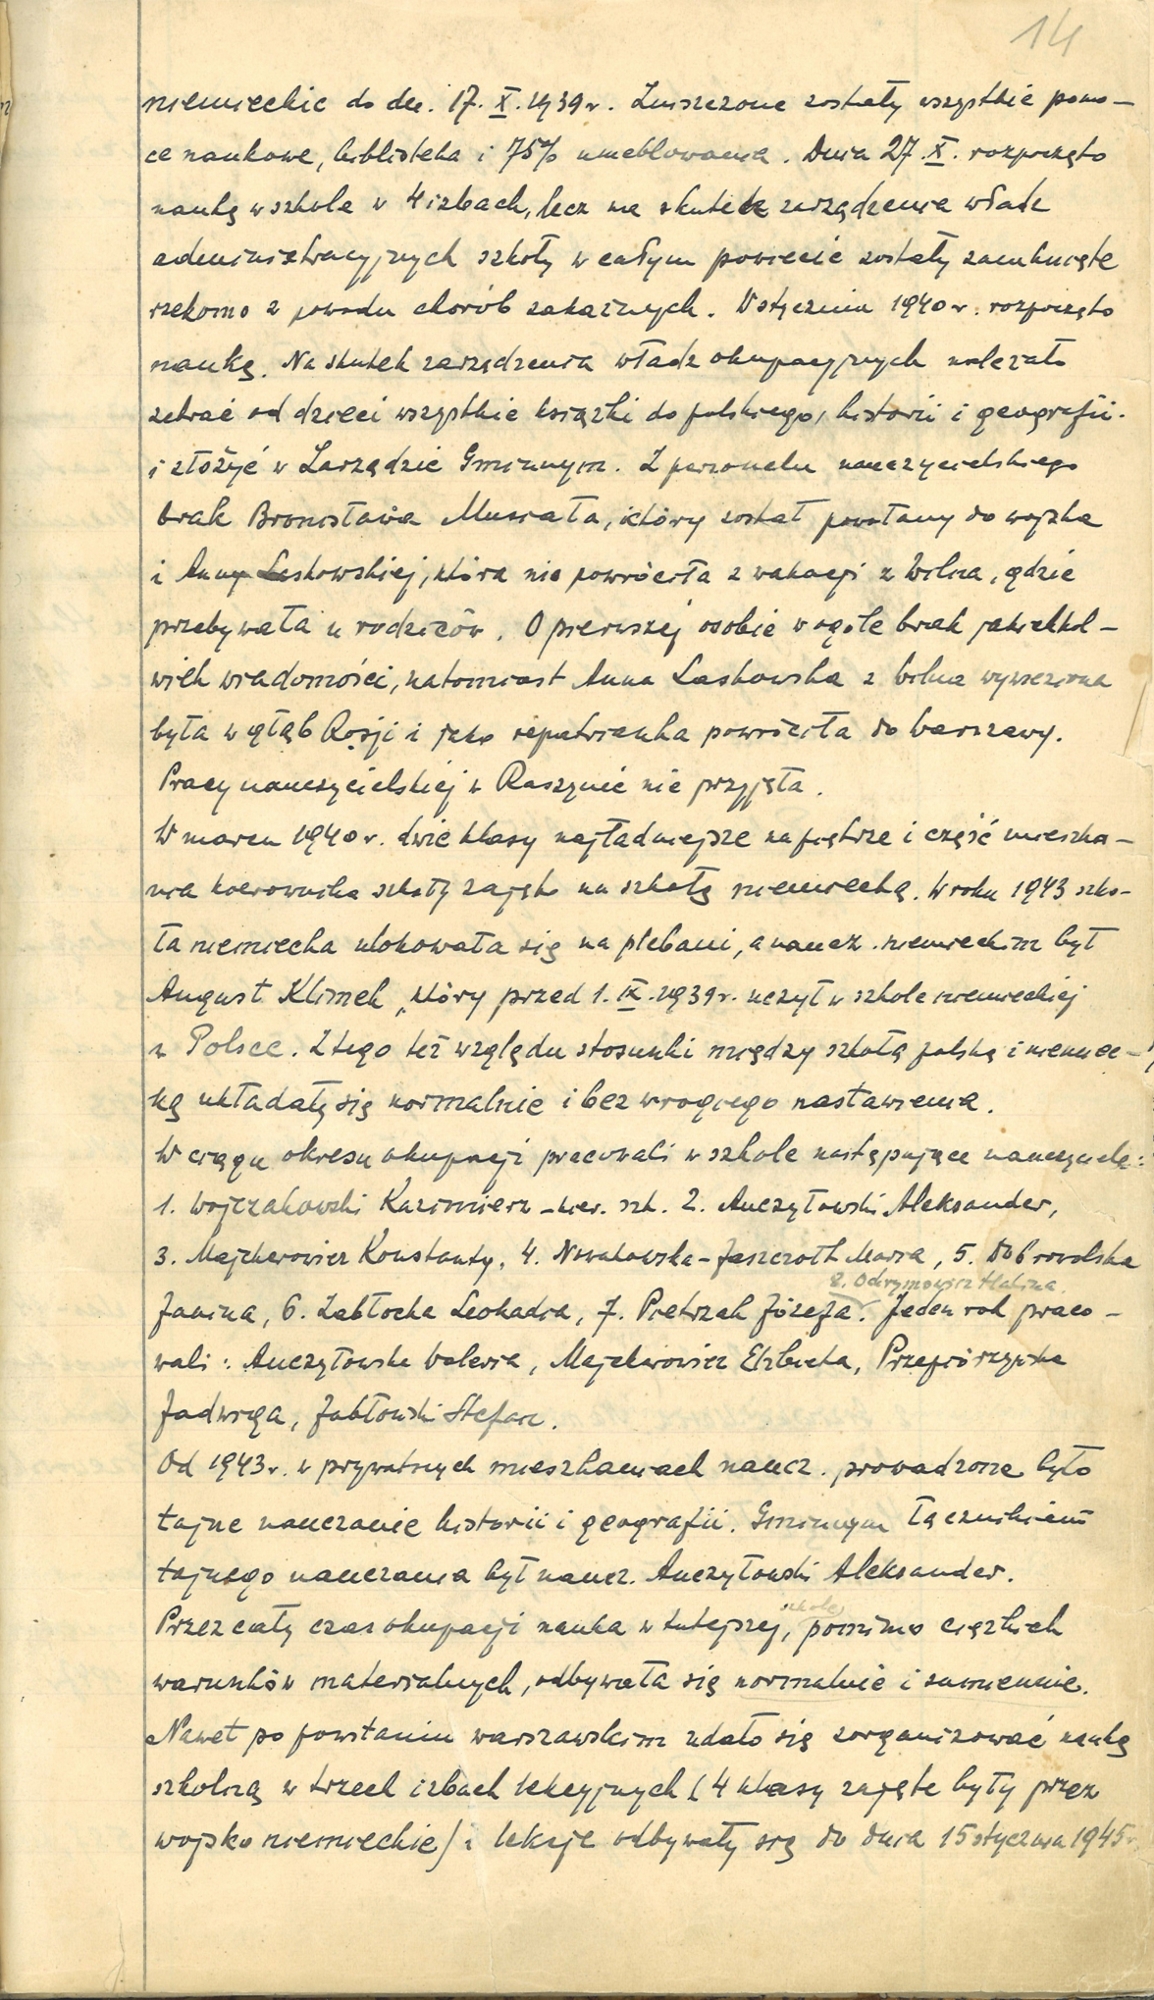 14
niemieckie do dn. 17. X. 1939 r. Zniszczone zostały wszystkie pomo-
ce naukowe, biblioteka i 75% umeblowania. Dnia 27. X. rozpoczęto
naukę w szkole w 4 izbach, lecz na skutek zarządzenia władz
administracyjnych szkoły w całym powiecie zostały zamknięte
rzekomo z powodu chorób zakaźnych. W styczniu 1940 r. rozpoczęto
naukę. Na skutek zarządzenia władz okupacyjnych należało
zebrać od dzieci wszystkie książki do polskiego, historii i geografii
i złożyć w Zarządzie Gminnym. Z personelu nauczycielskiego
brak Bronisława Musiała, który został powołany do wojska
i Anny Laskowskiej, która nie powróciła z wakacji z Wilna, gdzie
przebywała u rodziców. O pierwszej osobie w ogóle brak jakichkol-
wiek wiadomości, natomiast Anna Laskowska z Wilna wywieziona
była w głąb Rosji i jako repatrianka powróciła do Warszawy.
Pracy nauczycielskiej w Raszynie nie przyjęła.
W marcu 1940 r. dwie klasy najładniejsze na piętrze i część mieszka-
nia kierownika szkoły zajęto na szkołę niemiecką. W roku 1943 szko-
ła niemiecka ulokowała się na plebanii, a naucz. niemieckim był
August Klimek, który przed 1. IX. 1939 r. uczył w szkole niemieckiej
w Polsce. Z tego też względu stosunki między szkołą polską i niemiec-
ką układały się normalnie i bez wrogiego nastawienia.
W ciągu okresu okupacji pracowali w szkole następujące nauczyciele:
1. Wojczakowski Kazimierz - kier. szk. 2. Auczyłowski Aleksander,
3. Majcherowicz Konstanty, 4. Nowakowska-Jaszczołt Maria, 5. Dobrowolska
8. Odrymowicz Halina
Janina, 6. Zabłocka Leokadia, 7. Pietrzak Józefa. Jeden rok praco-
wali: Auczyłowska Waleria, Majcherowicz Elżbieta, Przepiórzyńska
Jadwiga, Jabłoński Stefan.
Od 1943 r. w prywatnych mieszkaniach naucz. prowadzone było
tajne nauczanie historii i geografii. Gminnym łącznikiem
tajnego nauczania był naucz. Auczyłowski Aleksander.
szkole
Przez cały czas okupacji nauka w tutejszej, pomimo ciężkich
warunków materialnych, odbywała się normalnie i sumiennie.
Nawet po powstaniu warszawskim udało się zorganizować naukę
szkolną w trzech izbach lekcyjnych (4 klasy zajęte były przez
wojsko niemieckie) i lekcje odbywały się do dnia 15 stycznia 1945 r.